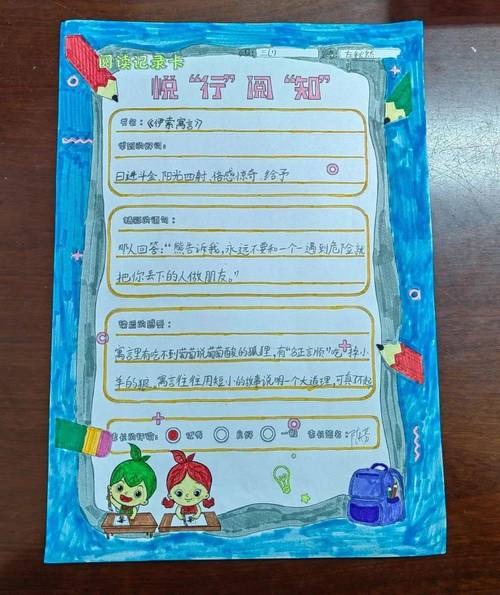 阅读记录卡
三(1)
悦“行”阅“知”
书名：《伊索寓言》
学到的好词：
日进斗金、阳光四射、倍感惊奇、给予
精彩的语句：
那人回答：“熊告诉我，永远不要和一个一遇到危险就
把你丢下的人做朋友。”
读后的感受：
寓言里有吃不到葡萄说葡萄酸的狐狸，有“名正言顺”吃掉小
羊的狼。寓言往往用短小的故事说明一个大道理，可真不起
家长的评价： 优秀 良好 一般 家长签名：